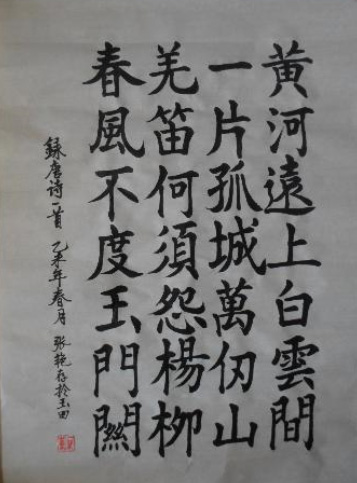 黄河遠上白雲間
一片孤城萬仞山
羌笛何須怨楊柳
春風不度玉門關
錄唐诗一首 乙未年春月 张艳存於玉田